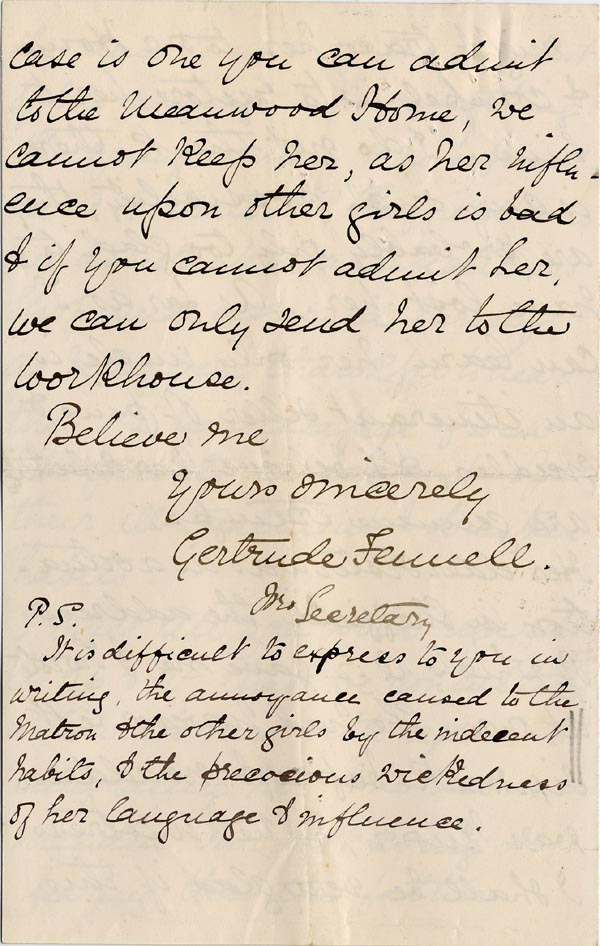 case is one you can admit
to the Meanwood Home, we
cannot keep her, as her influ-
ence upon other girls is bad
& if you cannot admit her,
we can only send her to the
workhouse.
Believe me
Yours sincerely
Gertrude Fennell.
Secretary
P.S.
It is difficult to express to you in
writing, the annoyance caused to the
Matron & the other girls by the indecent
habits, & the precocious wickedness
of her language & influence.